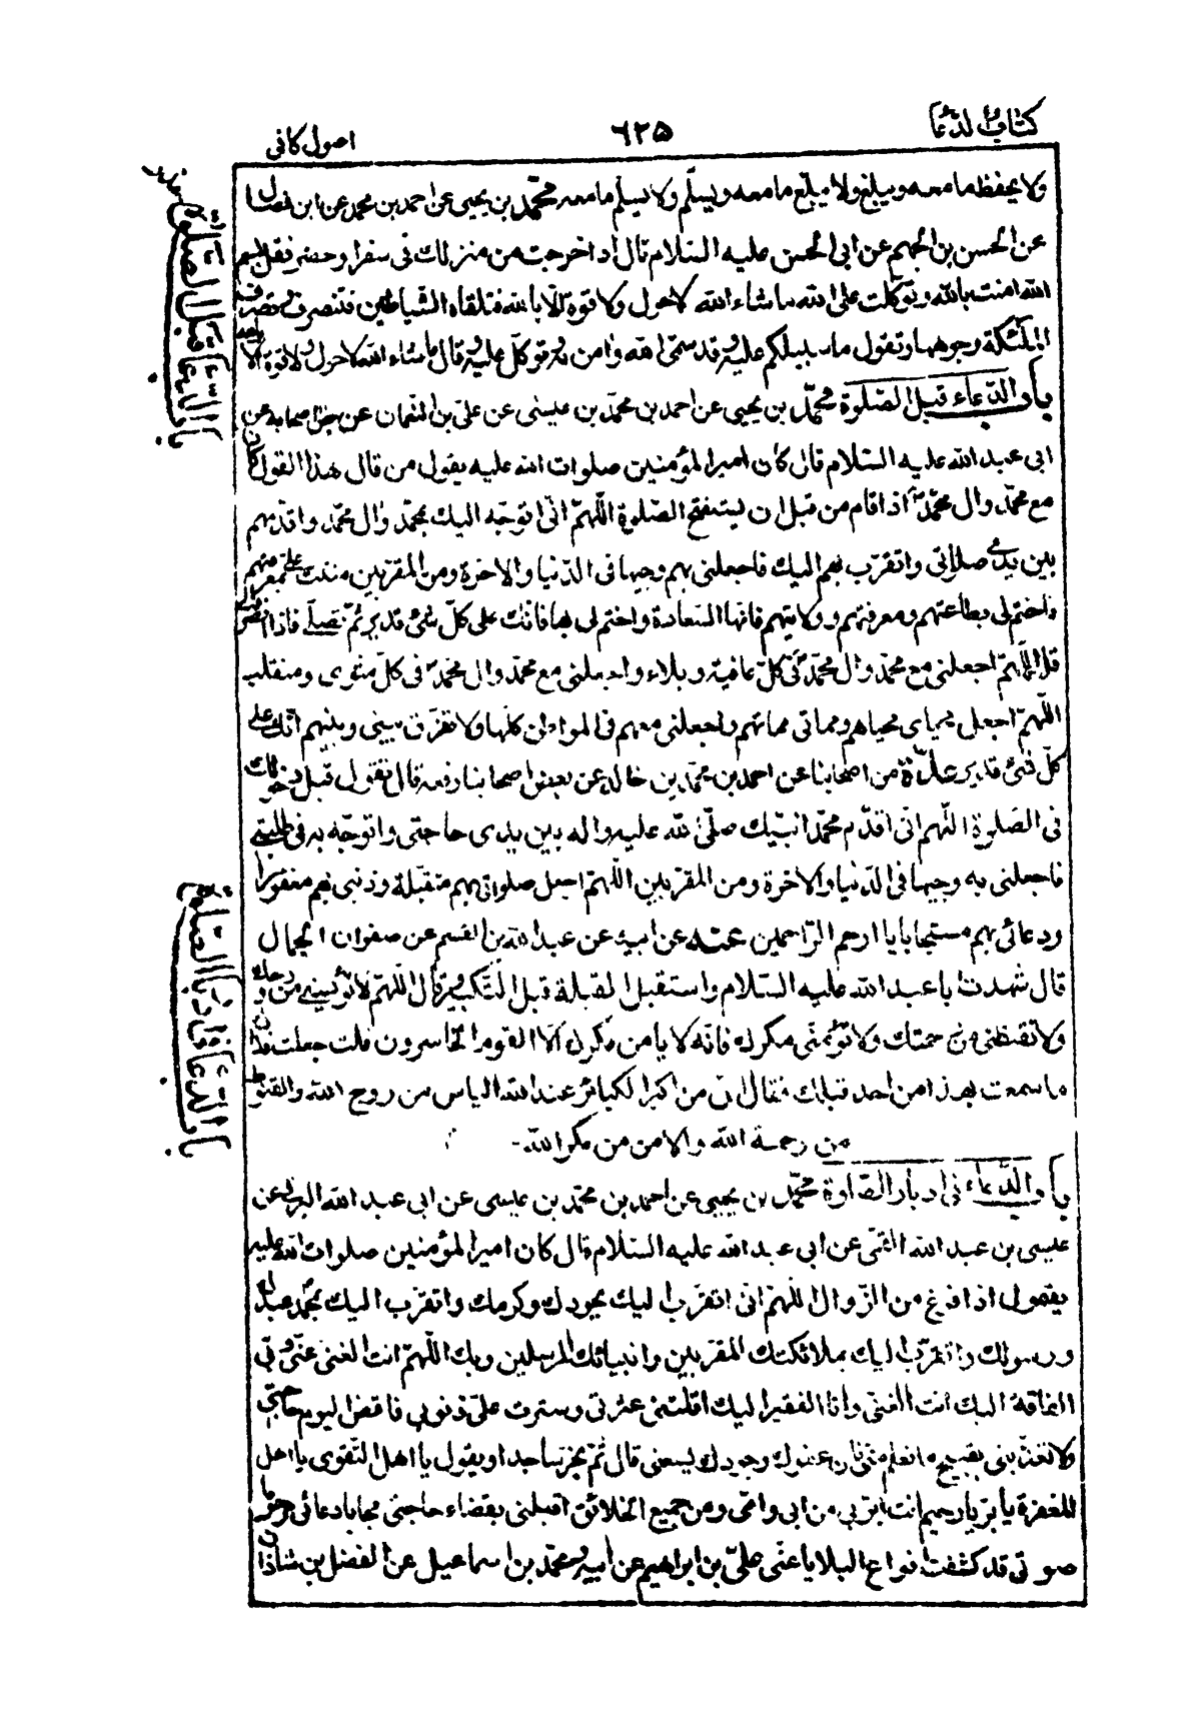 كتاب الدعا
٦٢٥
اصول كافى
ولا يحفظ ما معه ويبلغ ولا يبلّغ ما معه ويسلّم ولا يسلّم ما معه محمّد بن يحيى عن احمد بن محمد عن ابن فضال
عن الحسن بن الجهم عن ابى الحسن عليه السّلام قال اذا خرجت من منزلك فى سفر او حضر فقل بسم
الله امنت بالله وتوكّلت على الله ما شاء الله لا حول ولا قوة الّا بالله فتلقاه الشّياطين فتنصرف وتضرب
الملئكة وجوهها وتقول ما سبيلكم عليه وقد سمّى الله وامن به وتوكّل عليه وقال ما شاء الله لا حول ولا قوة الا بالله
باب الدّعاء قبل الصّلوة محمّد بن يحيى عن احمد بن محمّد بن عيسى عن علىّ بن النّعمان عن بعض اصحابه عن
ابى عبد الله عليه السّلام قال كان امير المؤمنين صلوات الله عليه يقول من قال هذا القول كان
مع محمّد وال محمّد اذا قام من قبل ان يستفتح الصّلوة اللّهمّ انّى اتوجّه اليك بمحمّد وال محمّد واقدّمهم
بين يدى صلاتى واتقرّب بهم اليك فاجعلنى بهم وجيها فى الدّنيا والاخرة ومن المقرّبين مننت علىّ بمعرفتهم
فاختم لى بطاعتهم ومعرفتهم وولايتهم فانّها السّعادة واختم لى بها فانّك على كلّ شئ قدير ثمّ تصلّى فاذا انصرفت
قلت اللّهمّ اجعلنى مع محمّد وال محمّد فى كلّ عافية وبلاء واجعلنى مع محمّد وال محمّد فى كلّ مثوى ومنقلب
اللّهمّ اجعل محياى محياهم ومماتى مماتهم واجعلنى معهم فى المواطن كلّها ولا تفرّق بينى وبينهم انّك على
كلّ شئ قدير عدّة من اصحابنا عن احمد بن محمّد بن خالد عن بعض اصحابنا رفعه قال تقول قبل دخولك
فى الصّلوة اللّهم انى اقدّم محمّدا نبيّك صلّى الله عليه واله بين يدى حاجتى واتوجّه به فى طلبتى
فاجعلنى به وجيها فى الدّنيا والاخرة ومن المقرّبين اللّهمّ اجعل صلواتى بهم متقبّلة وذنبى بهم مغفورا
ودعائى بهم مستجابا يا ارحم الرّاحمين عنه عن ابيه عن عبد الله بن القسم عن صفوان الجمال
قال شهدت ابا عبد الله عليه السّلام واستقبل القبلة قبل التّكبير وقال اللّهمّ لا تؤيسنى من روحك
ولا تقنطنى من رحمتك ولا تؤمنّى مكرك فانّه لا يأمن مكرك الّا القوم الخاسرون قلت جعلت فداك
ما سمعت بهذا من احد قبلك فقال انّ من اكبر الكبائر عند الله الياس من روح الله والقنوط
من رحمة الله والامن من مكر الله
باب الدّعاء فى ادبار الصّلوة محمّد بن يحيى عن احمد بن محمّد بن عيسى عن ابى عبد الله البرقى عن
عيسى بن عبد الله القمّى عن ابى عبد الله عليه السّلام قال كان امير المؤمنين صلوات الله عليه
يقول اذا فرغ من الزّوال اللّهمّ انّى اتقرّب اليك بجودك وكرمك واتقرّب اليك بمحمّد عبدك
ورسولك واتقرّب اليك بملائكتك المقرّبين وانبيائك المرسلين وبك اللّهمّ انت الغنىّ عنّى وبى
الفاقة اليك انت الغنىّ وانا الفقير اليك اقلتنى عثرتى وسترت علىّ ذنوبى فاقض اليوم حاجتى
ولا تعذّبنى بقبيح ما تعلم منّى بل عفوك وجودك يسعنى قال ثمّ يخرّ ساجدا ويقول يا اهل التّقوى يا اهل
المغفرة يا برّ يا رحيم انت ابرّ بى من ابى وامّى ومن جميع الخلائق اقبلنى بقضاء حاجتى مجابا دعائى مرحوما
صوتى قد كشفت انواع البلايا عنّى علىّ بن ابراهيم عن ابيه ومحمّد بن اسماعيل عن الفضل بن شاذان
باب الدّعا قبل الصّلوة
باب الدّعا فى ادبار الصّلوة